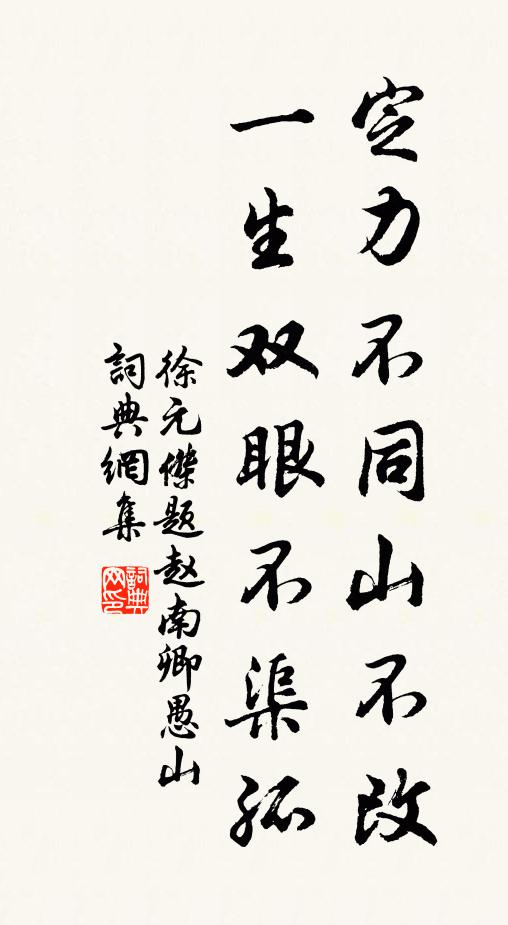 定力不同山不改
一生双眼不渠孤
徐元傑题赵南卿愚山
詞典網集
詞典网印